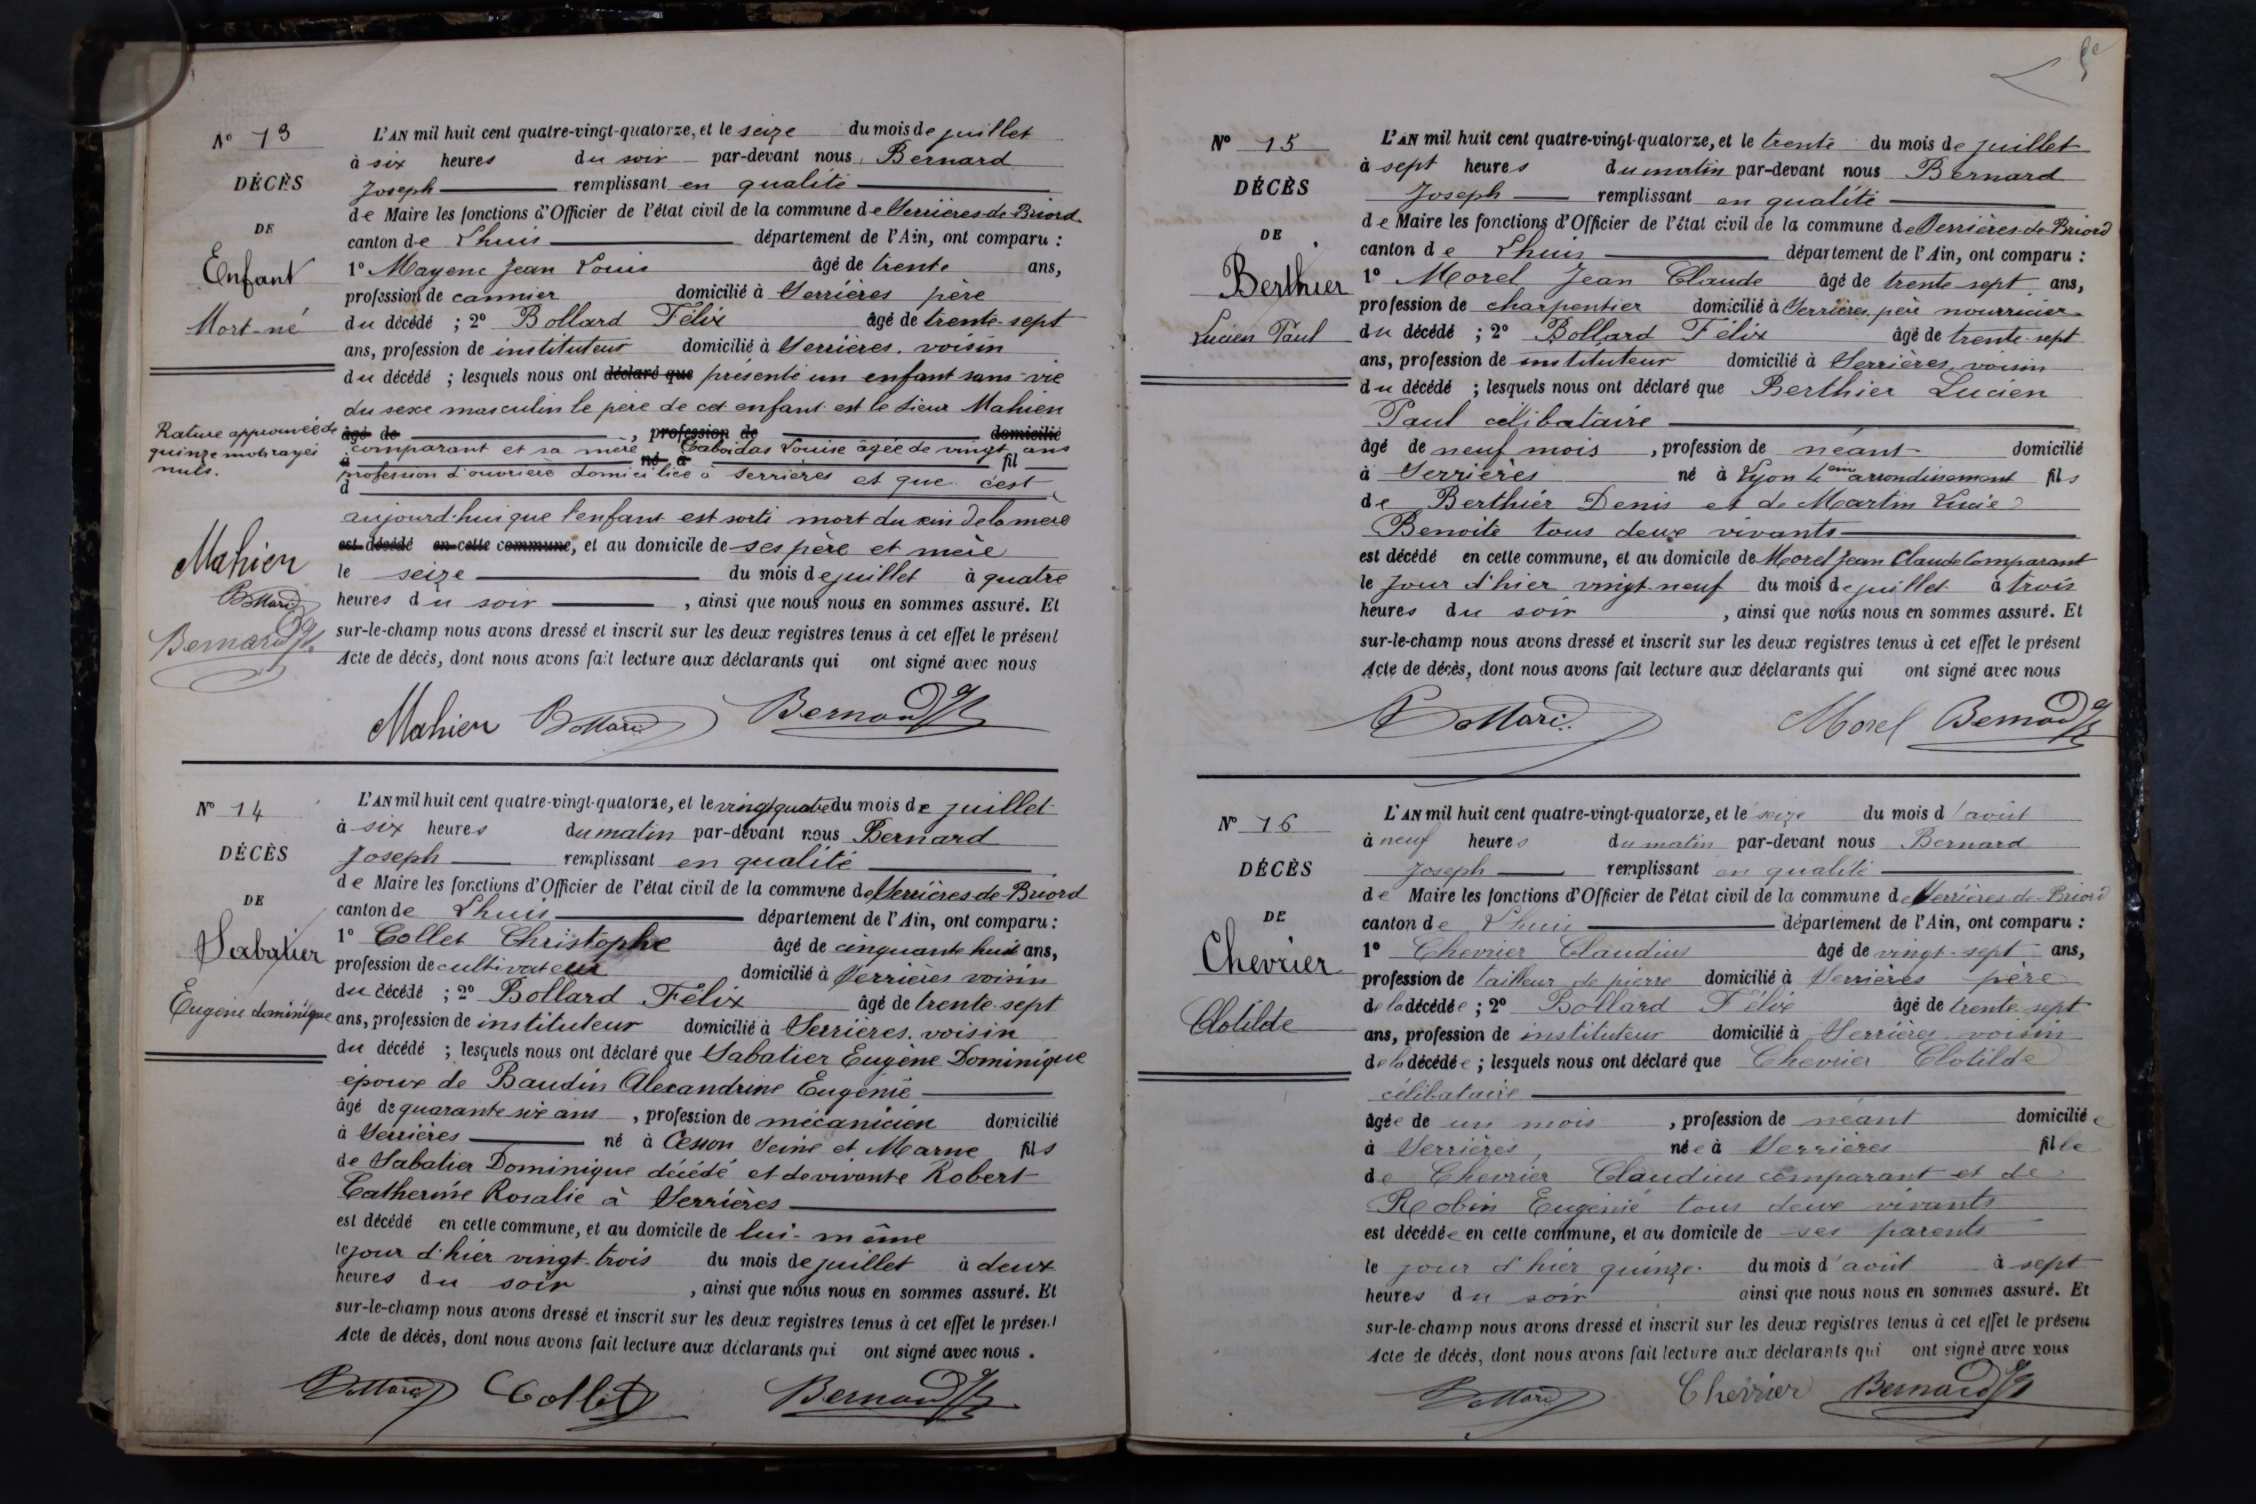 N° 13
DÉCÈS
DE
Enfant
Mort-né
Rature approuvée de
quinze mots rayés
nuls.
Mahien
Bollard
Bernard
L'AN mil huit cent quatre-vingt-quatorze, et le seize du mois de juillet
à six heures du soir par-devant nous Bernard
Joseph remplissant en qualité
de Maire les fonctions d'Officier de l'état civil de la commune de Serrières-de-Briord
canton de Lhuis département de l'Ain, ont comparu :
1° Jean Louis âgé de trente ans,
profession de cannier domicilié à Serrières père
du décédé ; 2° Bollard Félix âgé de trente-sept
ans, profession de instituteur domicilié à Serrières. voisin
du décédé ; lesquels nous ont déclaré que présenté un enfant sans vie
du sexe masculin le père de cet enfant est le sieur Mahien
âgé de , profession de domicilié
comparant et sa mère Louise âgée de vingt ans
à né à fil
profession d'ouvrière domiciliée à Serrières et que c'est
d
aujourd'hui que l'enfant est sorti mort du sein de la mère
est décédé en cette commune, et au domicile de ses père et mère
le seize du mois de juillet à quatre
heures du soir , ainsi que nous nous en sommes assuré. Et
sur-le-champ nous avons dressé et inscrit sur les deux registres tenus à cet effet le présent
Acte de décès, dont nous avons fait lecture aux déclarants qui ont signé avec nous
Mahien Bollard Bernard
N° 14
DÉCÈS
DE
Sabatier
Eugène dominique
L'AN mil huit cent quatre-vingt-quatorze, et le vingt quatre du mois de juillet
à six heures du matin par-devant nous Bernard
Joseph remplissant en qualité
de Maire les fonctions d'Officier de l'état civil de la commune de Serrières-de-Briord
canton de Lhuis département de l'Ain, ont comparu :
1° Collet Christophe âgé de cinquante huit ans,
profession de cultivateur domicilié à Serrières voisin
du décédé ; 2° Bollard Félix âgé de trente-sept
ans, profession de instituteur domicilié à Serrières. voisin
du décédé ; lesquels nous ont déclaré que Sabatier Eugène Dominique
époux de Baudin Alexandrine Eugénie
âgé de quarante six ans , profession de mécanicien domicilié
à Serrières né à Cesson Seine et Marne fils
de Sabatier Dominique décédé et de vivante Robert
Catherine Rosalie à Serrières
est décédé en cette commune, et au domicile de lui-même
le jour d'hier vingt-trois du mois de juillet à deux
heures du soir , ainsi que nous nous en sommes assuré. Et
sur-le-champ nous avons dressé et inscrit sur les deux registres tenus à cet effet le présent
Acte de décès, dont nous avons fait lecture aux déclarants qui ont signé avec nous.
Bollard Collet Bernard
N° 15
DÉCÈS
DE
Berthier
Lucien Paul
L'AN mil huit cent quatre-vingt-quatorze, et le trente du mois de juillet
à sept heures du matin par-devant nous Bernard
Joseph remplissant en qualité
de Maire les fonctions d'Officier de l'état civil de la commune de Serrières-de-Briord
canton de Lhuis département de l'Ain, ont comparu :
1° Morel Jean Claude âgé de trente-sept ans,
profession de charpentier domicilié à Serrières, père nourricier
du décédé ; 2° Bollard Félix âgé de trente-sept
ans, profession de instituteur domicilié à Serrières, voisin
du décédé ; lesquels nous ont déclaré que Berthier Lucien
Paul célibataire
âgé de neuf mois , profession de néant domicilié
à Serrières né à Lyon arrondissement fils
de Berthier Denis et de Martin Lucie
Benoite tous deux vivants
est décédé en cette commune, et au domicile de Morel Jean Claude Comparant
le jour d'hier vingt-neuf du mois de juillet à trois
heures du soir , ainsi que nous nous en sommes assuré. Et
sur-le-champ nous avons dressé et inscrit sur les deux registres tenus à cet effet le présent
Acte de décès, dont nous avons fait lecture aux déclarants qui ont signé avec nous
Bollard Morel Bernard
N° 16
DÉCÈS
DE
Chevrier
Clotilde
L'AN mil huit cent quatre-vingt-quatorze, et le seize du mois d'août
à neuf heures du matin par-devant nous Bernard
Joseph remplissant en qualité
de Maire les fonctions d'Officier de l'état civil de la commune de Serrières-de-Briord
canton de Lhuis département de l'Ain, ont comparu :
1° Chevrier Claudius âgé de vingt-sept ans,
profession de tailleur de pierre domicilié à Serrières père
de la décédée ; 2° Bollard Félix âgé de trente sept
ans, profession de instituteur domicilié à Serrières voisin
de la décédée ; lesquels nous ont déclaré que Chevrier Clotilde
célibataire
âgée de un mois , profession de néant domiciliée
à Serrières, née à Serrières fille
de Chevrier Claudius comparant et de
Robin Eugénie tous deux vivants
est décédée en cette commune, et au domicile de ses parents
le jour d'hier quinze du mois d'août à sept
heures du soir ainsi que nous nous en sommes assuré. Et
sur-le-champ nous avons dressé et inscrit sur les deux registres tenus à cet effet le présent
Acte de décès, dont nous avons fait lecture aux déclarants qui ont signé avec nous
Bollard Chevrier Bernard